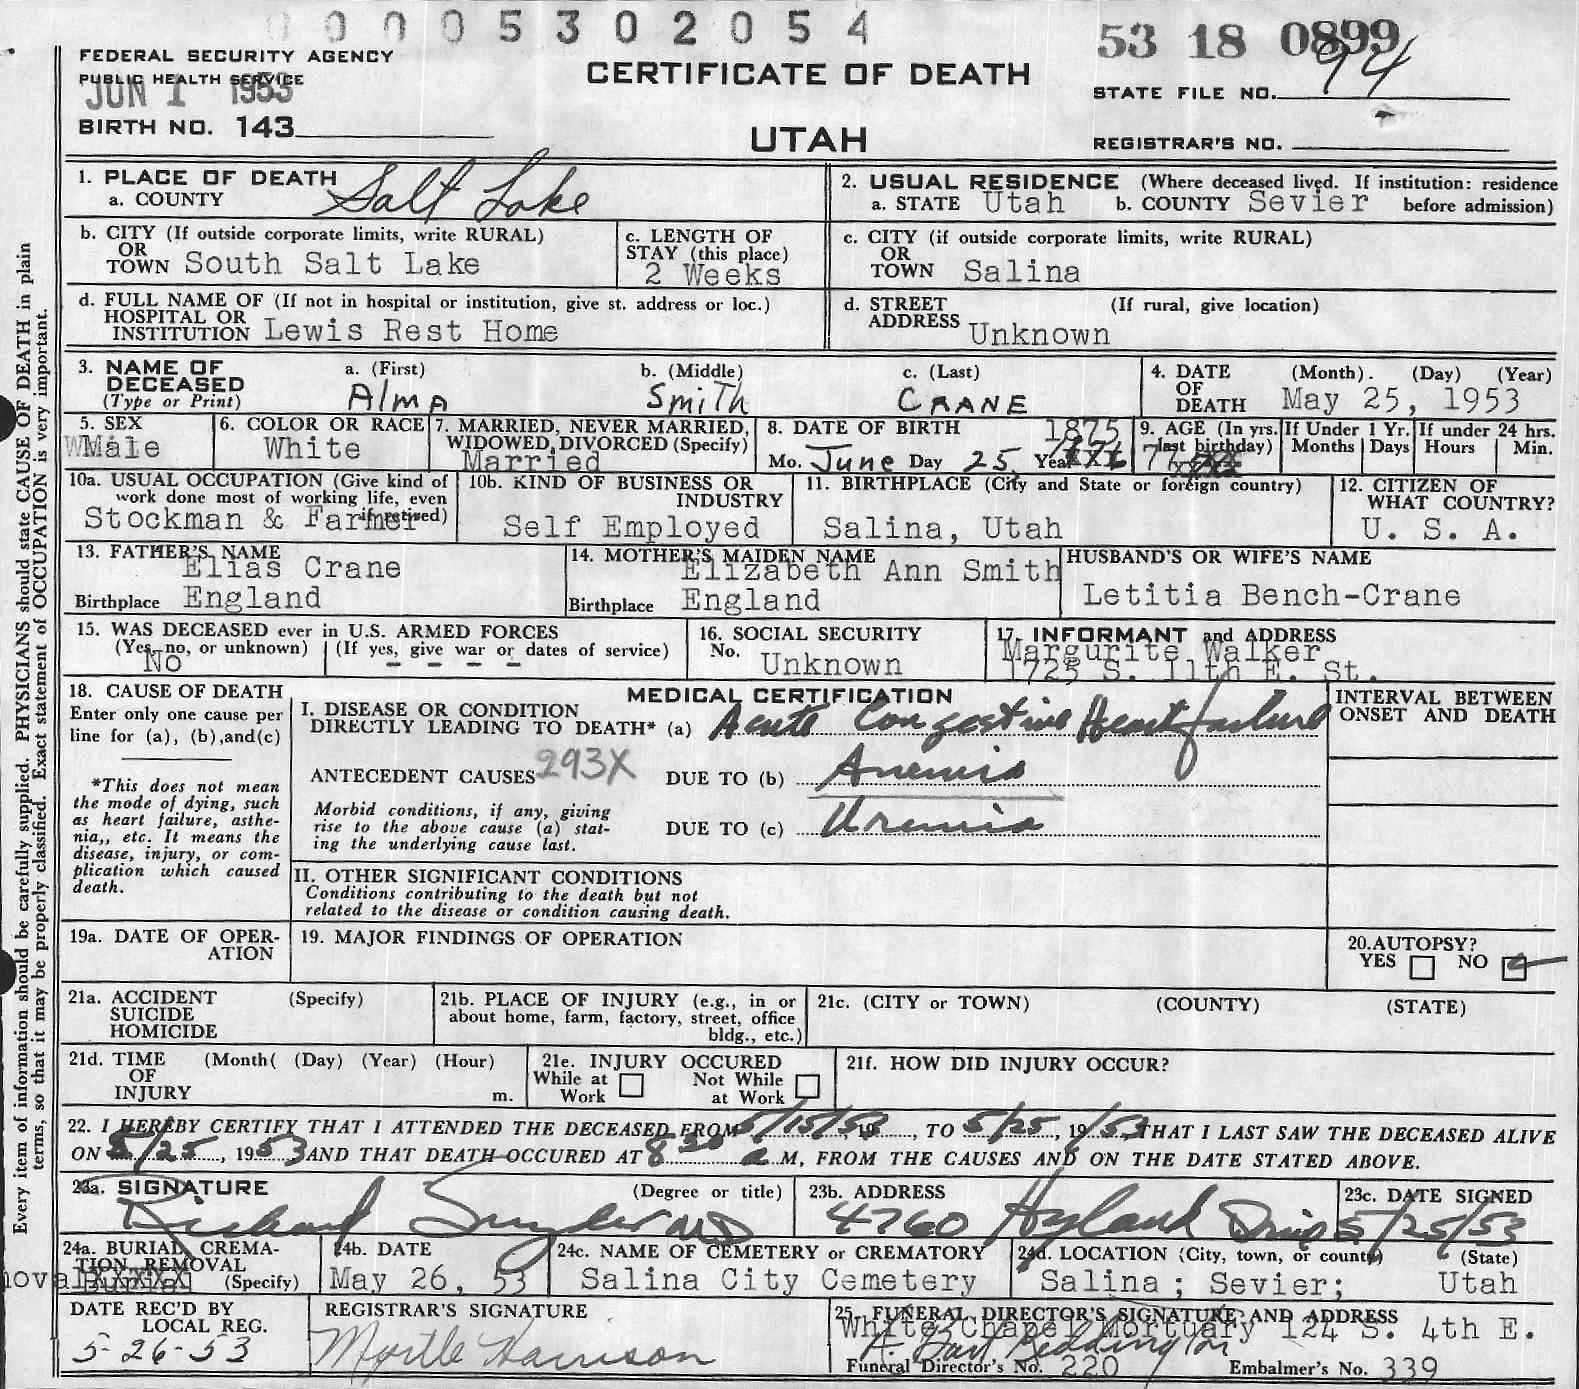 0 0 0 0 5 3 0 2 0 5 4
53 18 0899
94
FEDERAL SECURITY AGENCY
PUBLIC HEALTH SERVICE
JUN 1 1953
BIRTH NO. 143
CERTIFICATE OF DEATH
UTAH
STATE FILE NO.
REGISTRAR'S NO.
Every item of information should be carefully supplied. PHYSICIANS should state CAUSE OF DEATH in plain
terms, so that it may be properly classified. Exact statement of OCCUPATION is very important.
1. PLACE OF DEATH
a. COUNTY Salt Lake
2. USUAL RESIDENCE (Where deceased lived. If institution: residence
a. STATE Utah b. COUNTY Sevier before admission)
b. CITY (If outside corporate limits, write RURAL)
OR
TOWN South Salt Lake
c. LENGTH OF
STAY (this place)
2 Weeks
c. CITY (if outside corporate limits, write RURAL)
OR
TOWN Salina
d. FULL NAME OF (If not in hospital or institution, give st. address or loc.)
HOSPITAL OR
INSTITUTION Lewis Rest Home
d. STREET (If rural, give location)
ADDRESS Unknown
3. NAME OF
DECEASED
(Type or Print)
a. (First)
Alma
b. (Middle)
Smith
c. (Last)
CRANE
4. DATE (Month). (Day) (Year)
OF
DEATH May 25, 1953
5. SEX
Male
6. COLOR OR RACE
White
7. MARRIED, NEVER MARRIED,
WIDOWED, DIVORCED (Specify)
Married
8. DATE OF BIRTH 1875
Mo. June Day 25 Year
9. AGE (In yrs.
last birthday)
If Under 1 Yr.
Months Days
If under 24 hrs.
Hours Min.
10a. USUAL OCCUPATION (Give kind of
work done most of working life, even
if retired)
Stockman & Farmer
10b. KIND OF BUSINESS OR
INDUSTRY
Self Employed
11. BIRTHPLACE (City and State or foreign country)
Salina, Utah
12. CITIZEN OF
WHAT COUNTRY?
U. S. A.
13. FATHER'S NAME
Elias Crane
Birthplace England
14. MOTHER'S MAIDEN NAME
Elizabeth Ann Smith
Birthplace England
HUSBAND'S OR WIFE'S NAME
Letitia Bench-Crane
15. WAS DECEASED ever in U.S. ARMED FORCES
(Yes, no, or unknown) (If yes, give war or dates of service)
No - - - -
16. SOCIAL SECURITY
No. Unknown
17. INFORMANT and ADDRESS
Margurite Walker
1725 S. 11th E. St.
18. CAUSE OF DEATH
Enter only one cause per
line for (a), (b),and(c)
*This does not mean
the mode of dying, such
as heart failure, asthe-
nia,, etc. It means the
disease, injury, or com-
plication which caused
death.
MEDICAL CERTIFICATION
I. DISEASE OR CONDITION
DIRECTLY LEADING TO DEATH* (a) Acute Congestive Heart failure
ANTECEDENT CAUSES 293X DUE TO (b) Anemia
Morbid conditions, if any, giving
rise to the above cause (a) stat-
ing the underlying cause last.
DUE TO (c) Uremia
INTERVAL BETWEEN
ONSET AND DEATH
II. OTHER SIGNIFICANT CONDITIONS
Conditions contributing to the death but not
related to the disease or condition causing death.
19a. DATE OF OPER-
ATION
19. MAJOR FINDINGS OF OPERATION
20. AUTOPSY?
YES NO
21a. ACCIDENT (Specify)
SUICIDE
HOMICIDE
21b. PLACE OF INJURY (e.g., in or
about home, farm, factory, street, office
bldg., etc.)
21c. (CITY or TOWN) (COUNTY) (STATE)
21d. TIME (Month( (Day) (Year) (Hour)
OF
INJURY m.
21e. INJURY OCCURED
While at Work Not While at Work
21f. HOW DID INJURY OCCUR?
22. I HEREBY CERTIFY THAT I ATTENDED THE DECEASED FROM 5/15/53, 19, TO 5/25, 19/53 THAT I LAST SAW THE DECEASED ALIVE
ON 5/25, 1953 AND THAT DEATH OCCURED AT 8 30 a M, FROM THE CAUSES AND ON THE DATE STATED ABOVE.
23a. SIGNATURE (Degree or title)
Richard Snyder MD
23b. ADDRESS
4760 Hyland Drive
23c. DATE SIGNED
5/25/53
24a. BURIAL, CREMA-
TION, REMOVAL
(Specify)
24b. DATE
May 26, 53
24c. NAME OF CEMETERY or CREMATORY
Salina City Cemetery
24d. LOCATION (City, town, or county) (State)
Salina; Sevier; Utah
DATE REC'D BY
LOCAL REG.
5-26-53
REGISTRAR'S SIGNATURE
Myrtle Harrison
25. FUNERAL DIRECTOR'S SIGNATURE AND ADDRESS
White Chapel Mortuary 124 S. 4th E.
Funeral Director's No. 220 Embalmer's No. 339